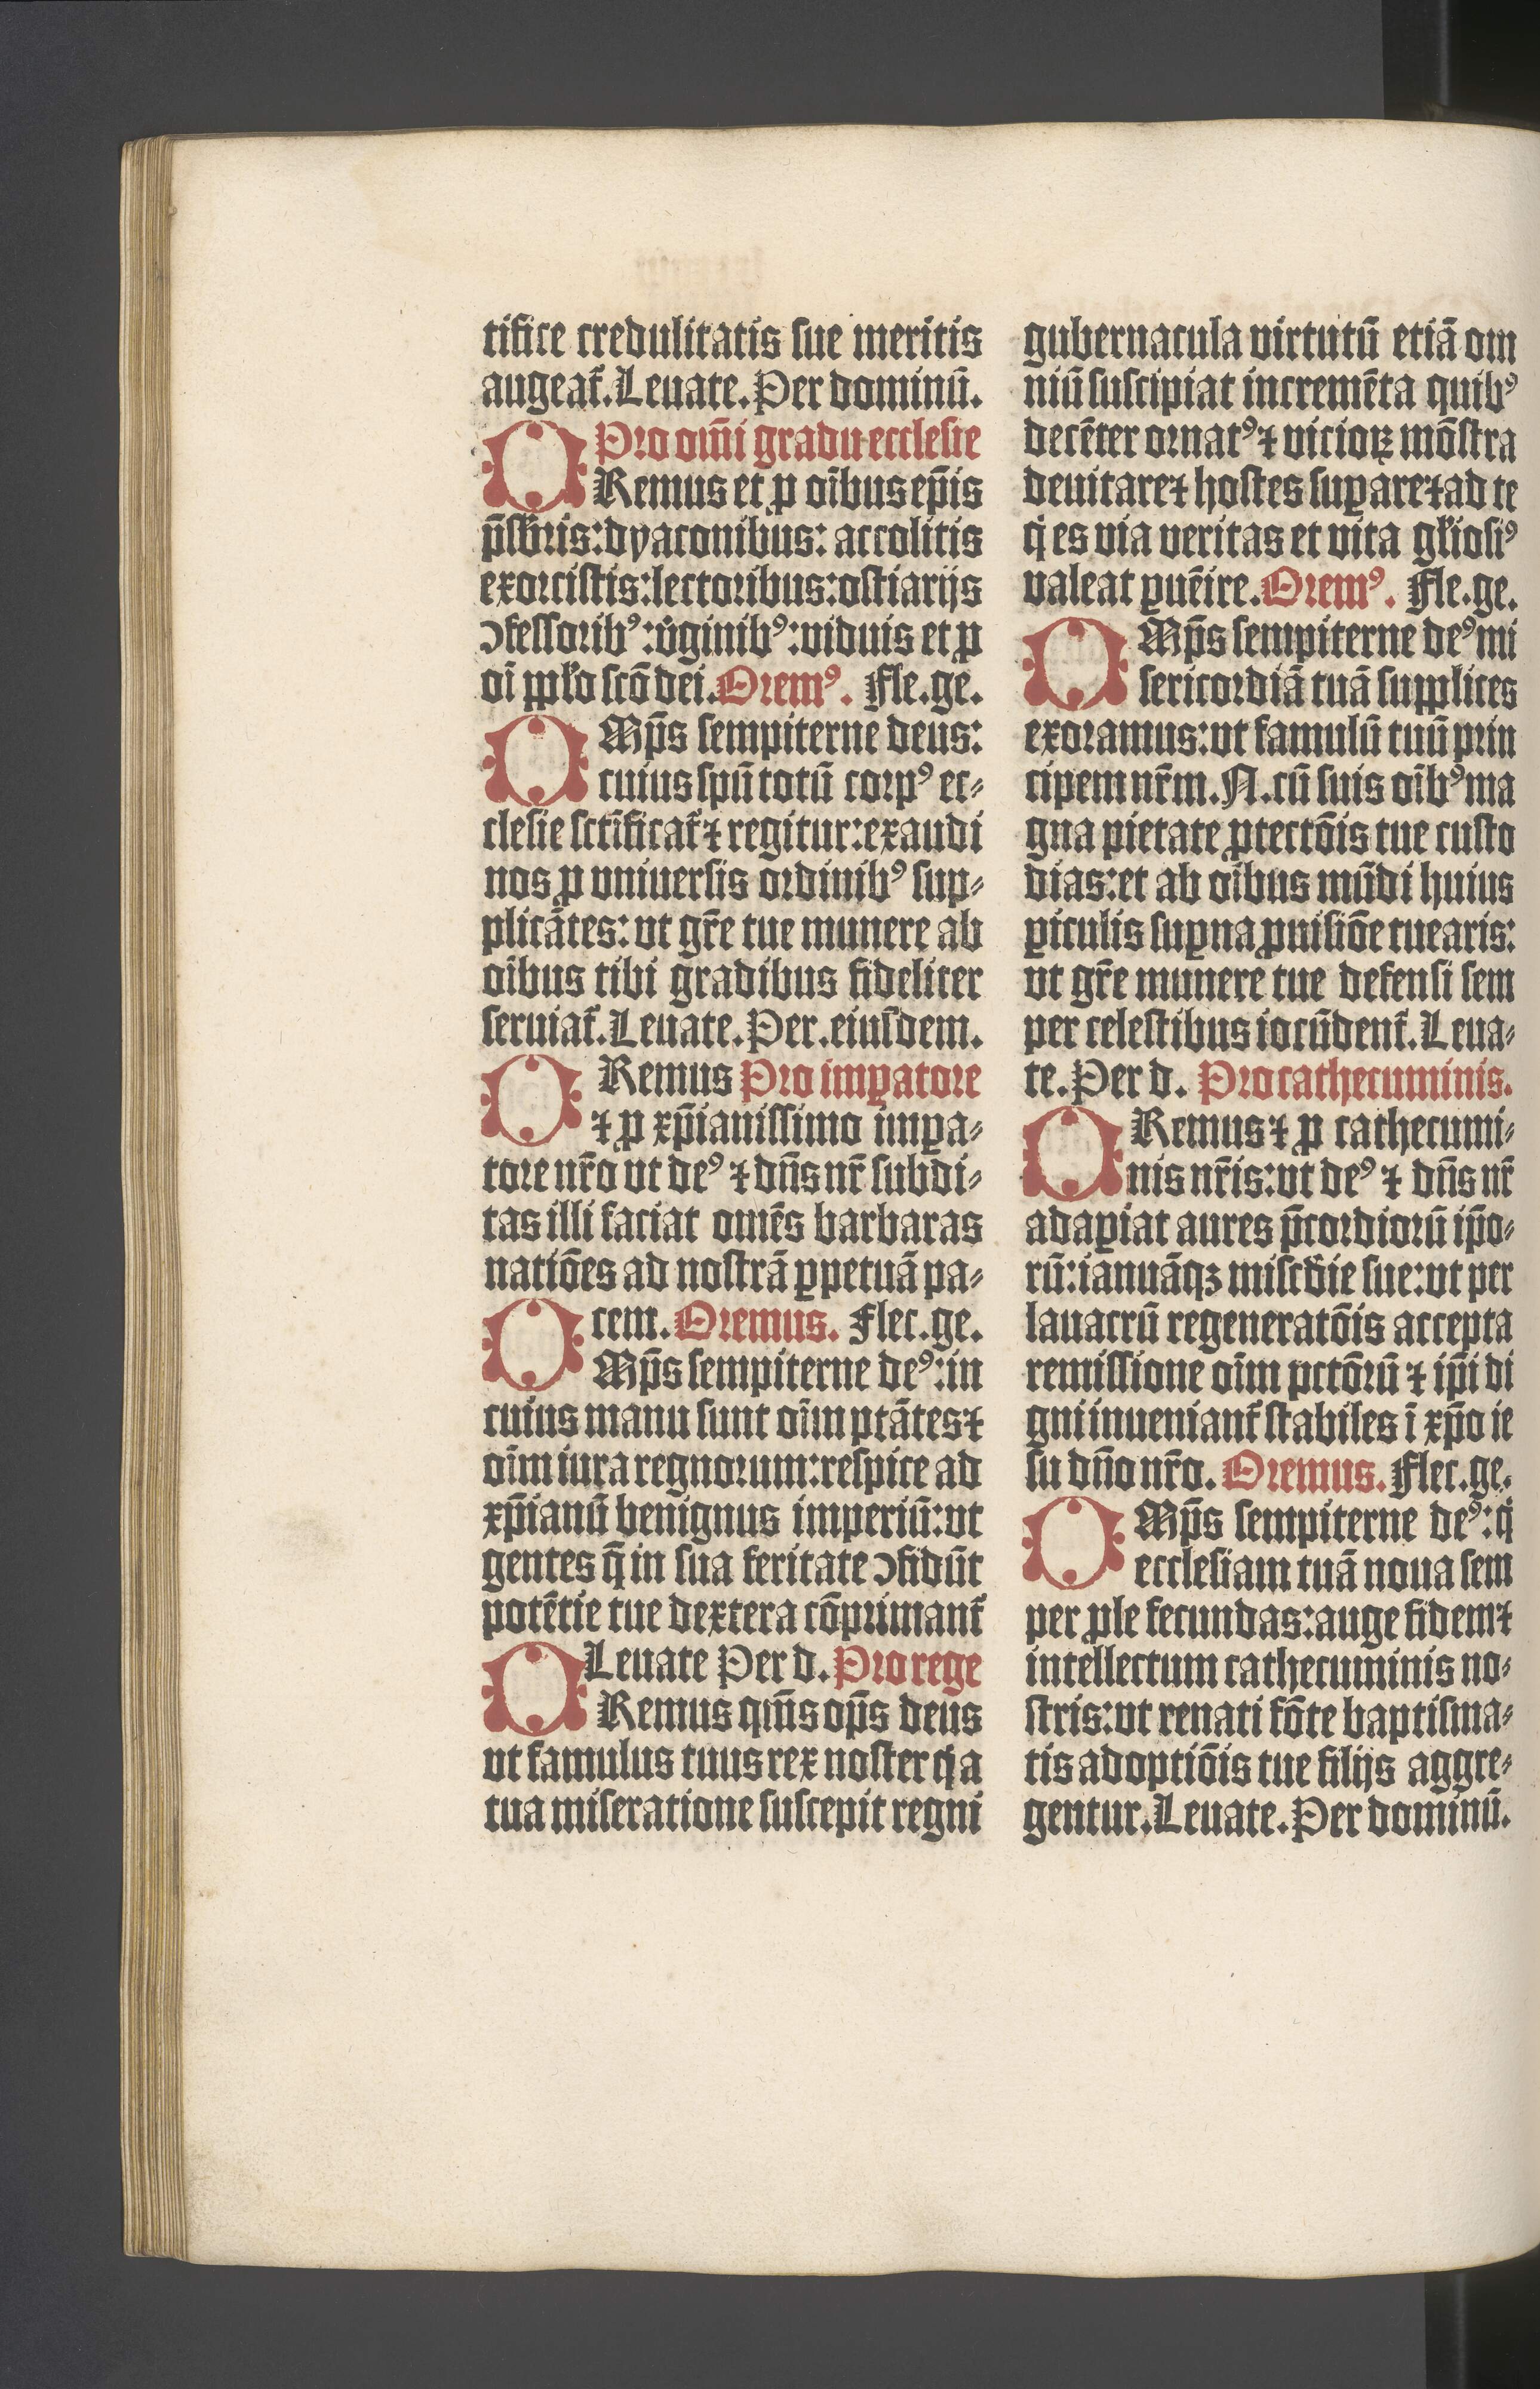 tifice credulitatis sue meritis
augeat᷑.Leuate.Per dominū.
Pro om̄i gradu ecclesie
ORemus et ꝓ oībus ep̄is
p̄sbr̄is:dyaconibus: accolitis
exorcistis:lectoribus:ostiarijs
ꝯfessoribꝰ:v̓ginibꝰ:viduis et ꝓ
oī ppl̓o scō dei.Oremꝰ. Fle.ge.
OMp̄s sempiterne deus:
cuius spū totū corpꝰ ec⸗
clesie sctīficat᷑ ⁊ regitur:exaudi
nos ꝓ vniuersis ordinibꝰ sup⸗
plicātes: vt gr̄e tue munere ab
oībus tibi gradibus fideliter
seruiat᷑.Leuate.Per.eiusdem.
ORemus Pro imꝑatore
⁊ ꝓ xp̄ianissimo imꝑa⸗
tore nr̄o vt deꝰ ⁊ dn̄s nr̄ subdi⸗
tas illi faciat omēs barbaras
natiōes ad nostrā ꝑpetuā pa⸗
cem. Oremus. Flec.ge.
OMp̄s sempiterne deꝰ:in
cuius manu sunt oīm ptātes ⁊
oīm iura regnorum:respice ad
xp̄ianū benignus imperiū:vt
gentes q̄ in sua feritate ꝯfidūt
potētie tue dextera cōprimant᷑
Leuate Per d. Pro rege
ORemus qm̄s op̄s deus
vt famulus tuus rex noster q̓ a
tua miseratione suscepit regni
gubernacula virtutū etiā om
niū suscipiat incremēta quibꝰ
decēter ornatꝰ ⁊ vicioꝝ mōstra
deuitare ⁊ hostes suꝑare ⁊ ad te
q̓ es via veritas et vita gl̓iosiꝰ
valeat ꝑuēire.Oremꝰ. Fle.ge.
OMp̄s sempiterne deꝰ mi
sericordiā tuā supplices
exoramus:vt famulū tuū prin
cipem nr̄m.N.cū suis oībꝰ ma
gna pietate ꝓtectōis tue custo
dias:et ab oībus mūdi huius
ꝑiculis suꝑna ꝓuisiōe tuearis:
vt gr̄e munere tue defensi sem
per celestibus iocūdent᷑.Leua⸗
te.Per d. Pro cathecuminis.
ORemus ⁊ ꝓ cathecumi⸗
nis nr̄is:vt deꝰ ⁊ dn̄s nr̄
adaꝑiat aures p̄cordiorū ip̄o⸗
rū:ianuāqꝫ misc̄die sue:vt per
lauacrū regeneratōis accepta
remissione oīm pctōrū ⁊ ip̄i di
gni inueniant᷑ stabiles ī xp̄o ie
su dn̄o nr̄o. Oremus. Flec.ge.
OMp̄s sempiterne deꝰ:q̓
ecclesiam tuā noua sem
per ꝓle fecundas:auge fidem ⁊
intellectum cathecuminis no⸗
stris:vt renati fōte baptisma⸗
tis adoptiōis tue filijs aggre⸗
gentur.Leuate.Per dominū.